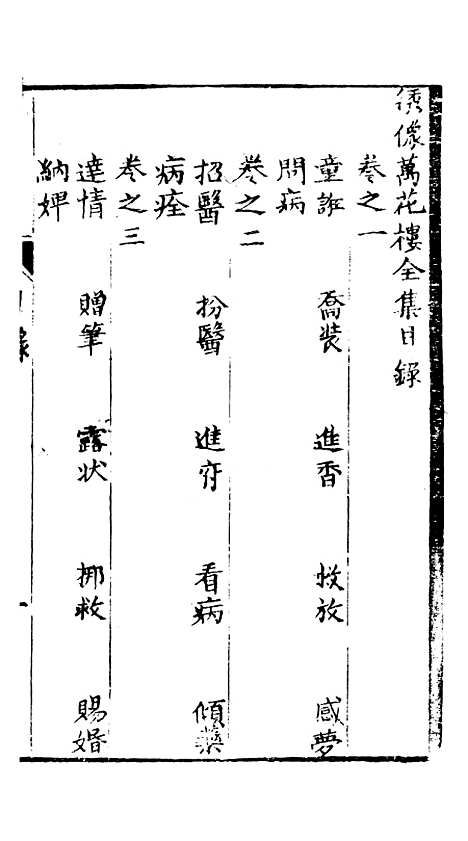 绣像萬花樓全集目錄
卷之一
童誑 喬裝 進香 放 感夢
問病
卷之二
招醫 扮醫 進府 看病 傾藥
病痊
卷之三
達情 贈筆 露状 挪救 賜婚
納婢
目錄